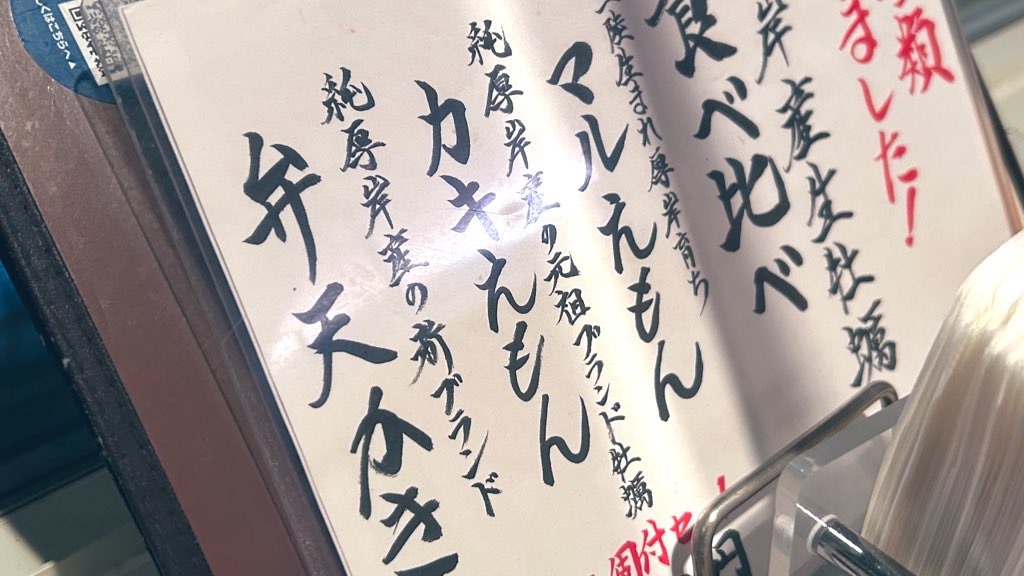 類
ました!
岸産生牡蠣
食べ比べ
生まれ厚岸育ち
マルえもん
純厚岸産の元祖ブランド牡蠣
カキえもん
純厚岸産の新ブランド
弁天かき
個付セ
円